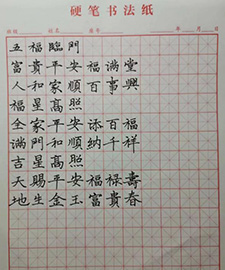 硬笔书法纸
年 月 日
五福臨門
富貴平安福滿堂
人和家順百事興
福星高照
全家平安添百福
滿門和順納千祥
吉星高照
天賜平安福禄壽
地生金玉富貴春